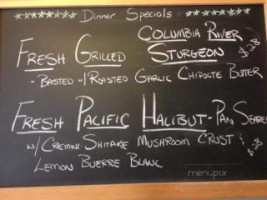 Dinner Specials
Columbia River
Fresh Grilled Sturgeon
- Basted w/ Roasted Garlic Chipolte Butter
Fresh Pacific Halibut - Pan Seared
w/ Cremini-Shitake Mushroom Crust &
Lemon Buerre Blanc
menupix